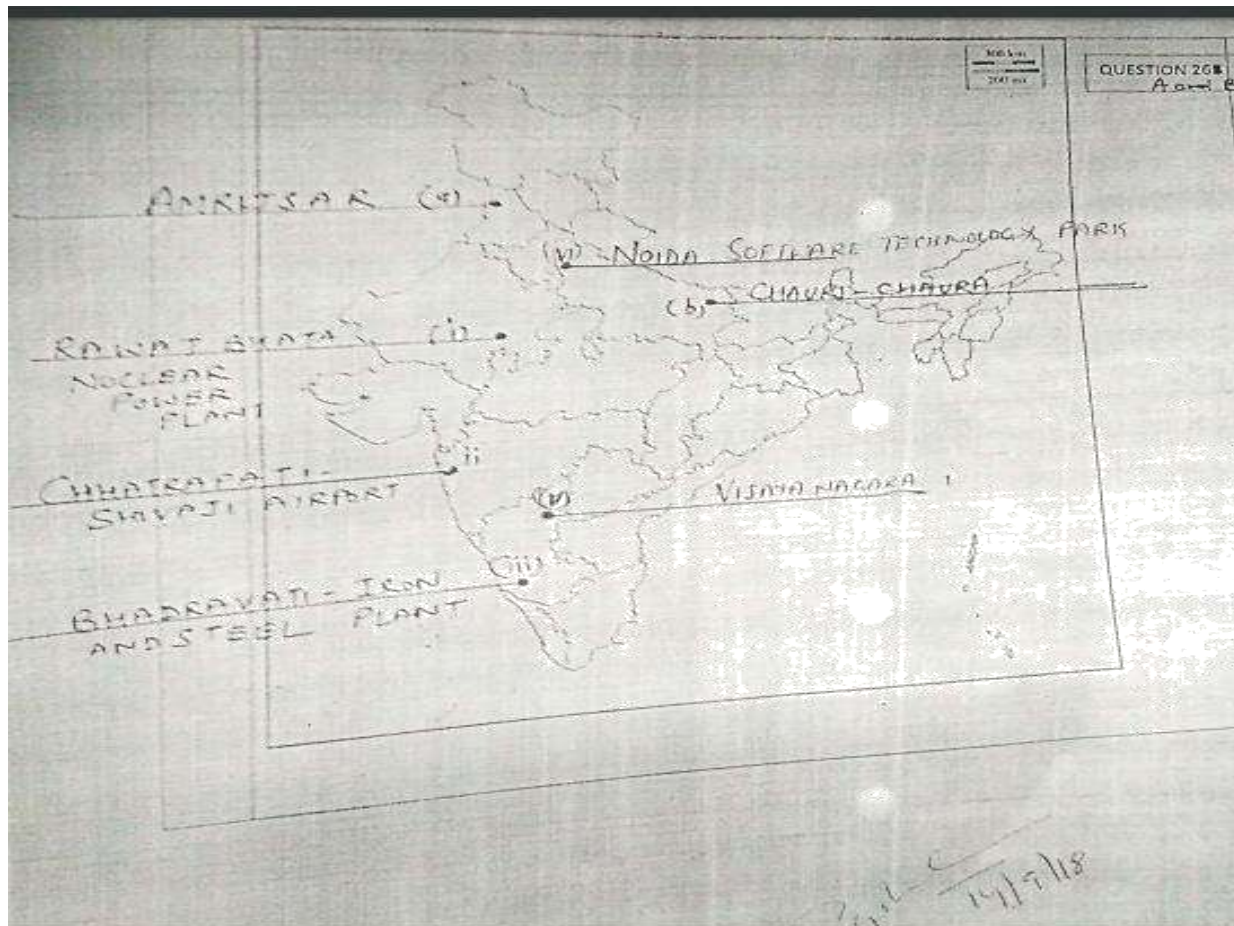 QUESTION 26
A and B
AMRITSAR (a)
(v) NOIDA SOFTWARE TECHNOLOGY PARK
(b) CHAURI-CHAURA
RAWAT BHATA (i)
NUCLEAR
POWER
PLANT
ii
CHHATRAPATI-
SHIVAJI AIRPORT
VIJAYANAGARA
(iii)
BHADRAVATI-IRON
AND STEEL PLANT